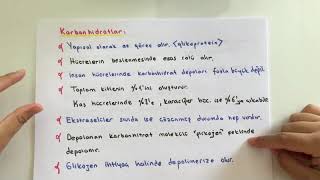 Karbonhidratlar;
Yapısal olarak az görev alır. (glikoprotein)
Hücrelerin beslenmesinde esas rolü alır.
İnsan hücrelerinde karbonhidrat depoları fazla büyük değil
Toplam kitlenin %1'ini oluşturur.
Kas hücrelerinde %3'e, karaciğer hüc. ise %6'ya çıkabilir
Ekstraselüler sıvıda ise çözünmüş durumda hep vardır.
Depolanan karbonhidrat molekülü "glikojen" şeklinde
depolanır.
Glikojen ihtiyaç halinde depolimerize olur.